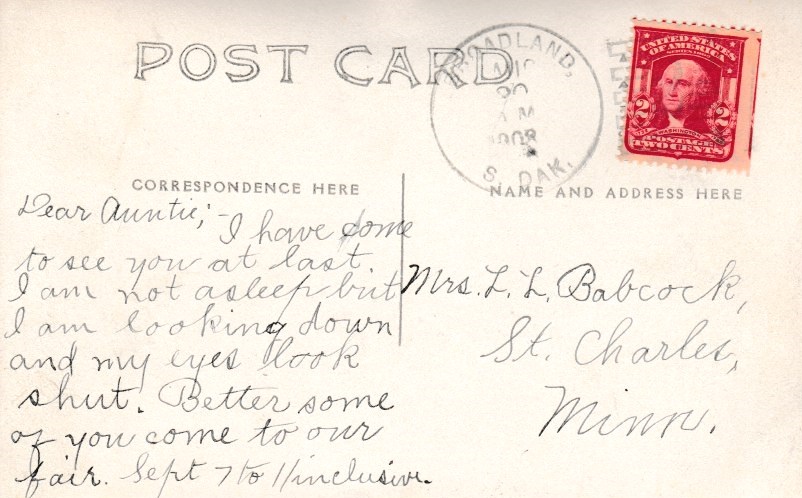 POST CARD
BROADLAND,
AUG
20
A M
1908
S. DAK.
UNITED STATES
OF AMERICA
2 2
WASHINGTON
POSTAGE
TWO CENTS
CORRESPONDENCE HERE
NAME AND ADDRESS HERE
Dear Auntie; - I have come
to see you at last
I am not asleep but
I am looking down
and my eyes look
shut. Better some
of you come to our
fair. Sept 7 to 11 inclusive.
Mrs. L. L. Babcock,
St. Charles,
Minn.